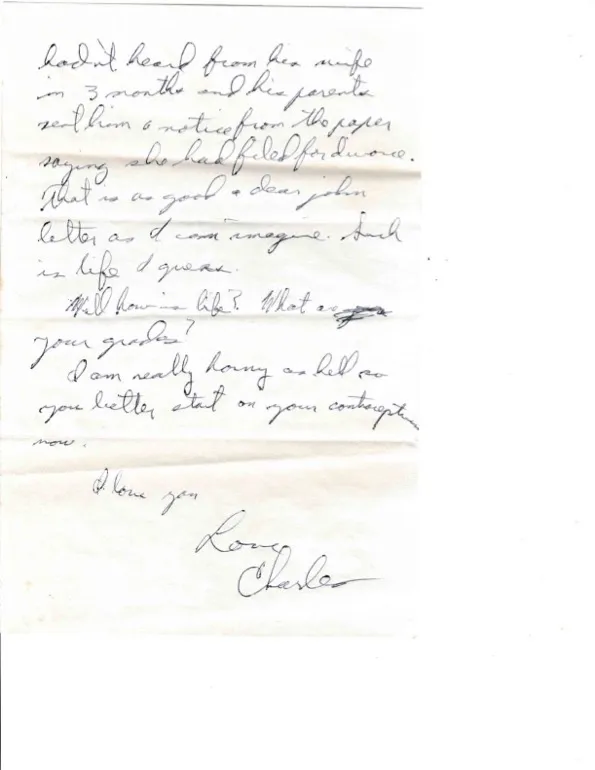 hadn't heard from his wife
in 3 months and his parents
sent him a notice from the paper
saying she had filed for divorce.
That is as good a dear john
letter as I can imagine. Such
is life I guess.
Well how is life? What are
your grades?
I am really horny as hell so
you better start on your contraceptives
now.
I love you
Love
Charles